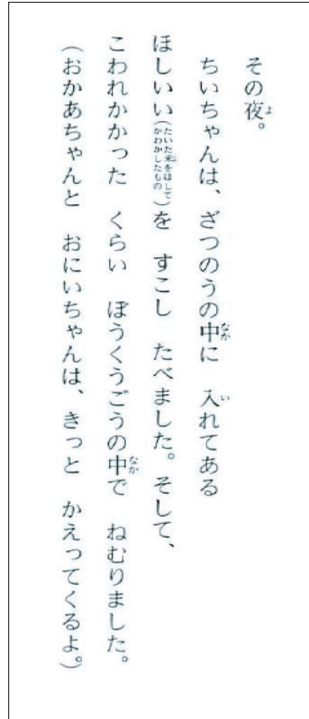 その夜。
ちいちゃんは、ざつのうの中に　入れてある
ほしいい(たいた米をほしてかわかしたもの)を　すこし　たべました。そして、
こわれかかった　くらい　ぼうくうごうの中で　ねむりました。
(おかあちゃんと　おにいちゃんは、きっと　かえってくるよ。)